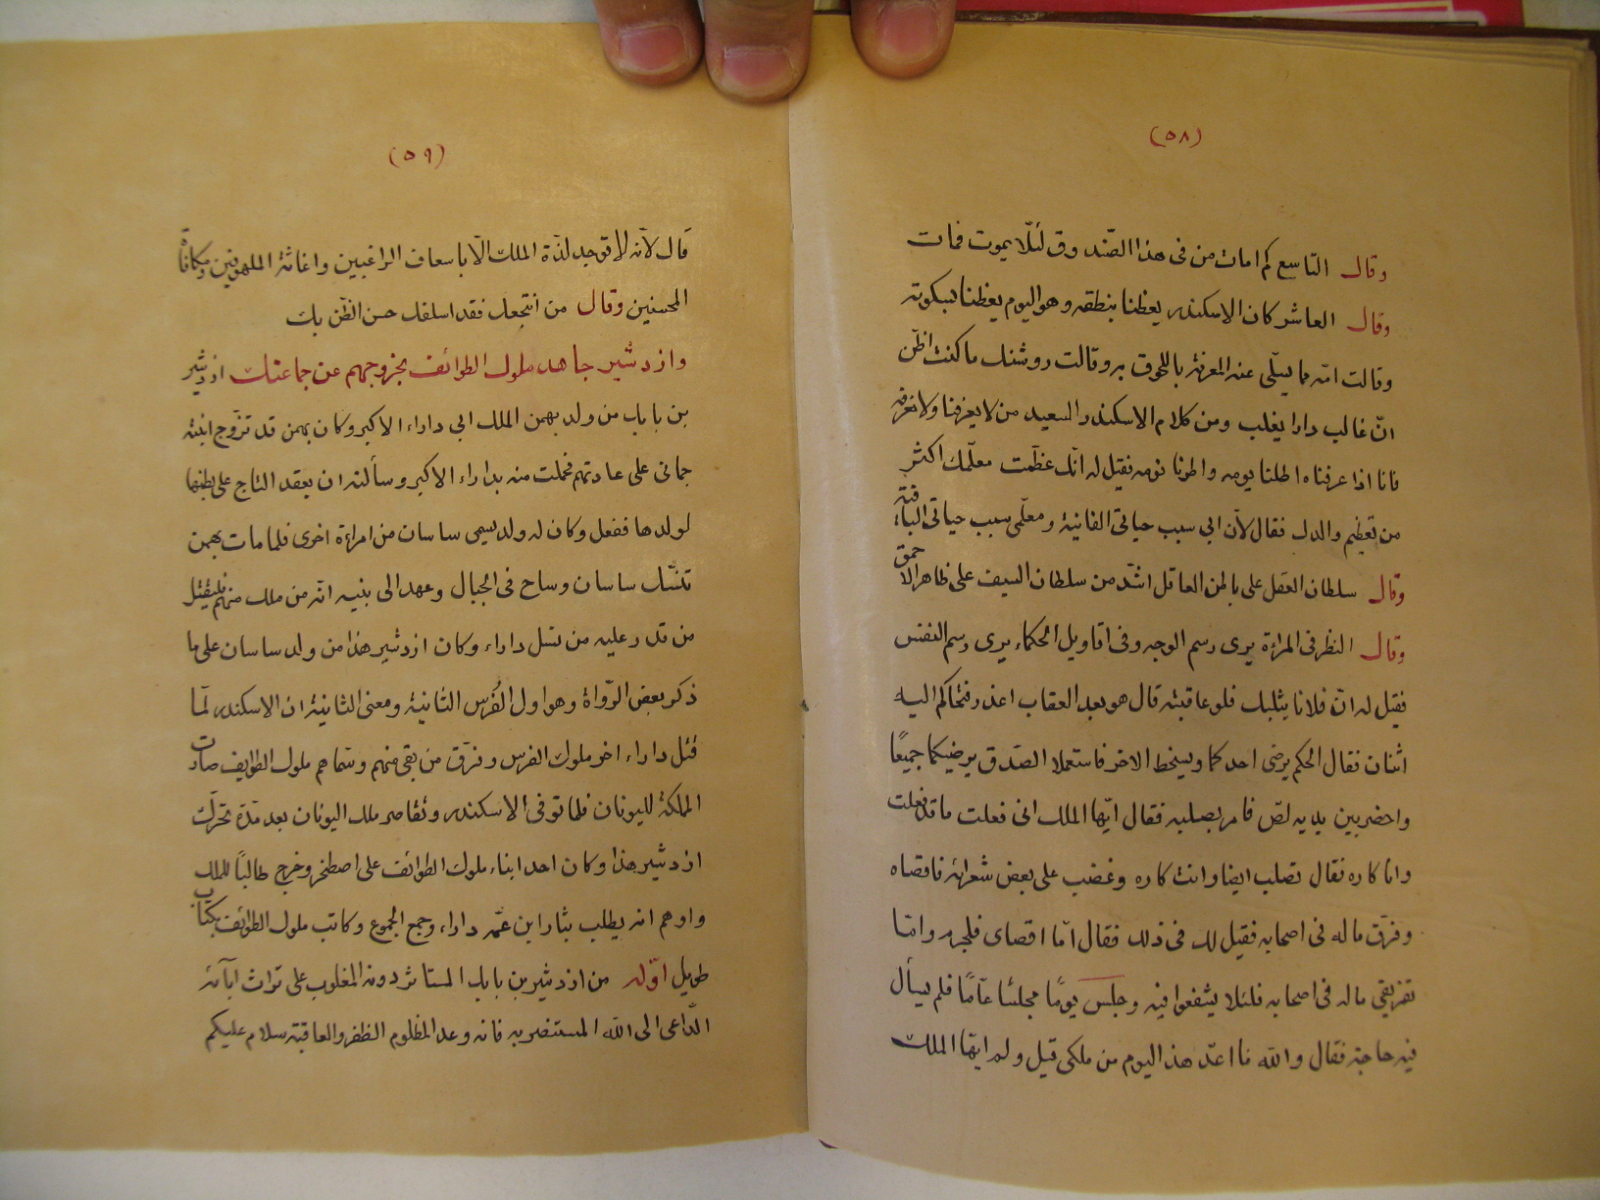 (٥٨)
وقال التاسع كم امات من فى هذا الصّندوق لئلّا يموت فمات
وقال العاشر كان الاسكندر يعظنا بنطقه وهو اليوم يعظنا بسكوته
وقالت امّه مما يسلّى عنه المعرفة باللحوق به وقالت روشنك ما كنت اظنّ
انّ غالب دارا يغلب ومن كلام الاسكندر السعيد من لا يعرفنا ولا نعرفه
فانا اذا عرفناه اطلنا يومه واطرنا نومه فقيل له انّك عظّمت معلّمك اكثر
من تعظيم والدك فقال لأن ابى سبب حياتى الفانية ومعلّمى سبب حياتى الباقية
وقال سلطان العقل على باطن العاقل اشدّ من سلطان السيف على ظاهر الاحمق
وقال النظر فى المرآة يرى رسم الوجه وفى اقاويل الحكماء يرى رسم النفس
فقيل له انّ فلانا يثلبك فلو عاقبته قال هو بعد العقاب اعذر وتحاكم اليه
اثنان فقال الحكم يرضى احدكما ويسخط الاخر فاستعملا الصّدق يرضيكما جميعًا
واحضر بين يديه لصّ فامر بصلبه فقال ايّها الملك انى فعلت ما قد فعلت
وانا كاره فقال تصلب ايضا وانت كاره وغضب على بعض شعرائه فاقصاه
وفرّق ماله فى اصحابه فقيل له فى ذلك فقال امّا اقصاى فلجرمه وامّا
تفريقى ماله فى اصحابه فلئلا يشفعوا فيه وجلس يومًا مجلسًا عامًّا فلم يسأل
فيه حاجة فقال والله ما اعدّ هذا اليوم من ملكى قيل ولم ايّها الملك
(٥٩)
قال لأنّه لا توجد لذّة الملك الّا باسعاف الراغبين واغاثة الملهوفين ومكافأة
المحسنين وقال من انتجعك فقد اسلفك حسن الظّن بك
وازدشير جاهد ملوك الطوائف بخروجهم عن جماعتك ازدشير
بن بابك من ولد بهمن الملك ابى داراء الاكبر وكان بهمن قد تزوّج ابنته
جمانى على عادتهم فحملت منه بداراء الاكبر وسألته ان يعقد التاج على بطنها
لولدها ففعل وكان له ولد يسمى ساسان من امرءة اخرى فلما مات بهمن
تنسّك ساسان وساح فى الجبال وعهد الى بنيه انّه من ملك منهم فليقتل
من قدر عليه من نسل داراء وكان ازدشير هذا من ولد ساسان على ما
ذكر بعض الرّواة وهو اول الفُرس الثانية ومعنى الثانية ان الاسكندر لمّا
قتل داراء اخر ملوك الفرس وفرّق من بقى منهم وسماهم ملوك الطوايف صارت
المملكة لليونان فلما توفى الاسكندر وتقاصر ملك اليونان بعد مدّة تحرّك
ازدشير هذا وكان احد ابناء ملوك الطوائف على اصطخر وخرج طالبًا للملك
واوهم انه يطلب بثار ابن عمّه داراء وجمع الجموع وكاتب ملوك الطوائف بكتاب
طويل اوّله من ازدشير بن بابك المستاثر دونه المغلوب على تراث آبآئه
الدّاعى الى الله المستنصر به فانه وعد المظلوم الظفر والعاقبة سلام عليكم